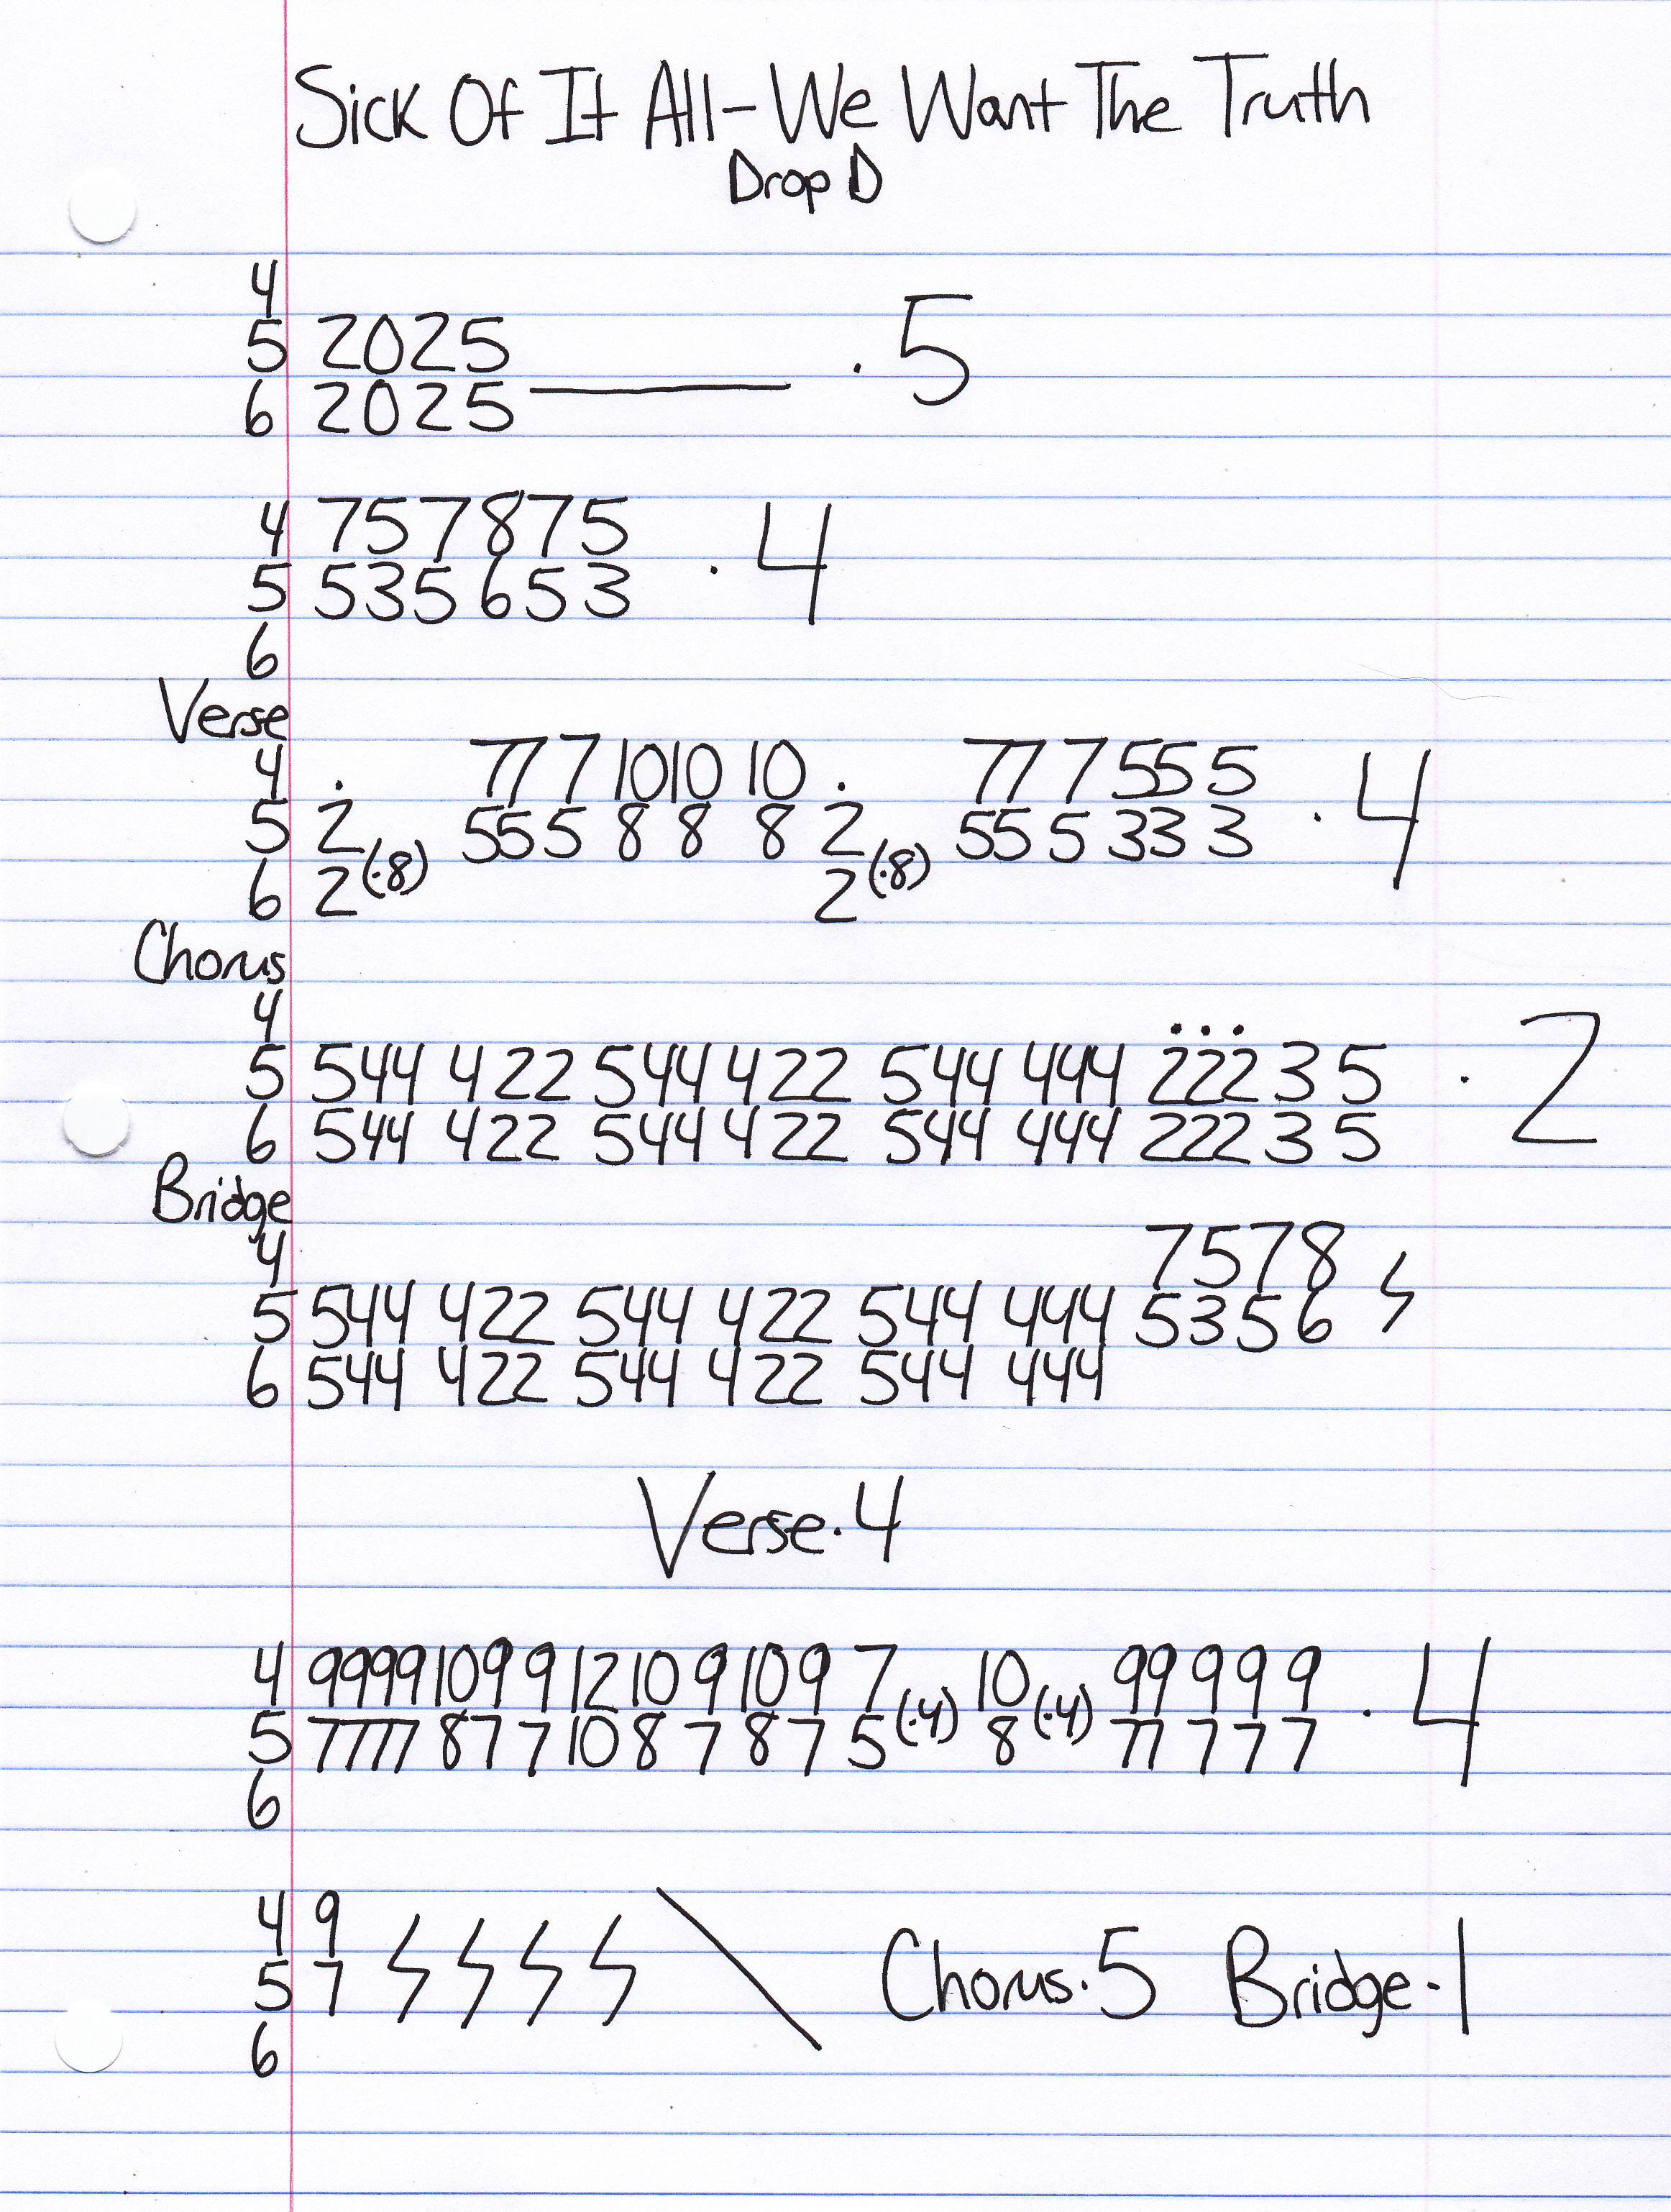 Sick Of It All - We Want The Truth
Drop D
4
5 2025
6 2025 ———— . 5
4 757875
5 535653 . 4
6
Verse
4 . 77 7 1010 10 . 77 7 55 5
5 2 (.8) 555 8 8 8 2 (.8) 55 5 33 3 . 4
6 2 2
Chorus
4 ...
5 544 422 544 422 544 444 222 3 5 . 2
6 544 422 544 422 544 444 222 3 5
Bridge
4 7578
5 544 422 544 422 544 444 5356
6 544 422 544 422 544 444
Verse . 4
4 9999 10 9 9 12 10 9 10 9 7 (.4) 10 (.4) 99 9 9 9
5 7777 8 7 7 10 8 7 8 7 5 8 77 7 7 7 . 4
6
4 9
5 7 \ Chorus . 5 Bridge . 1
6